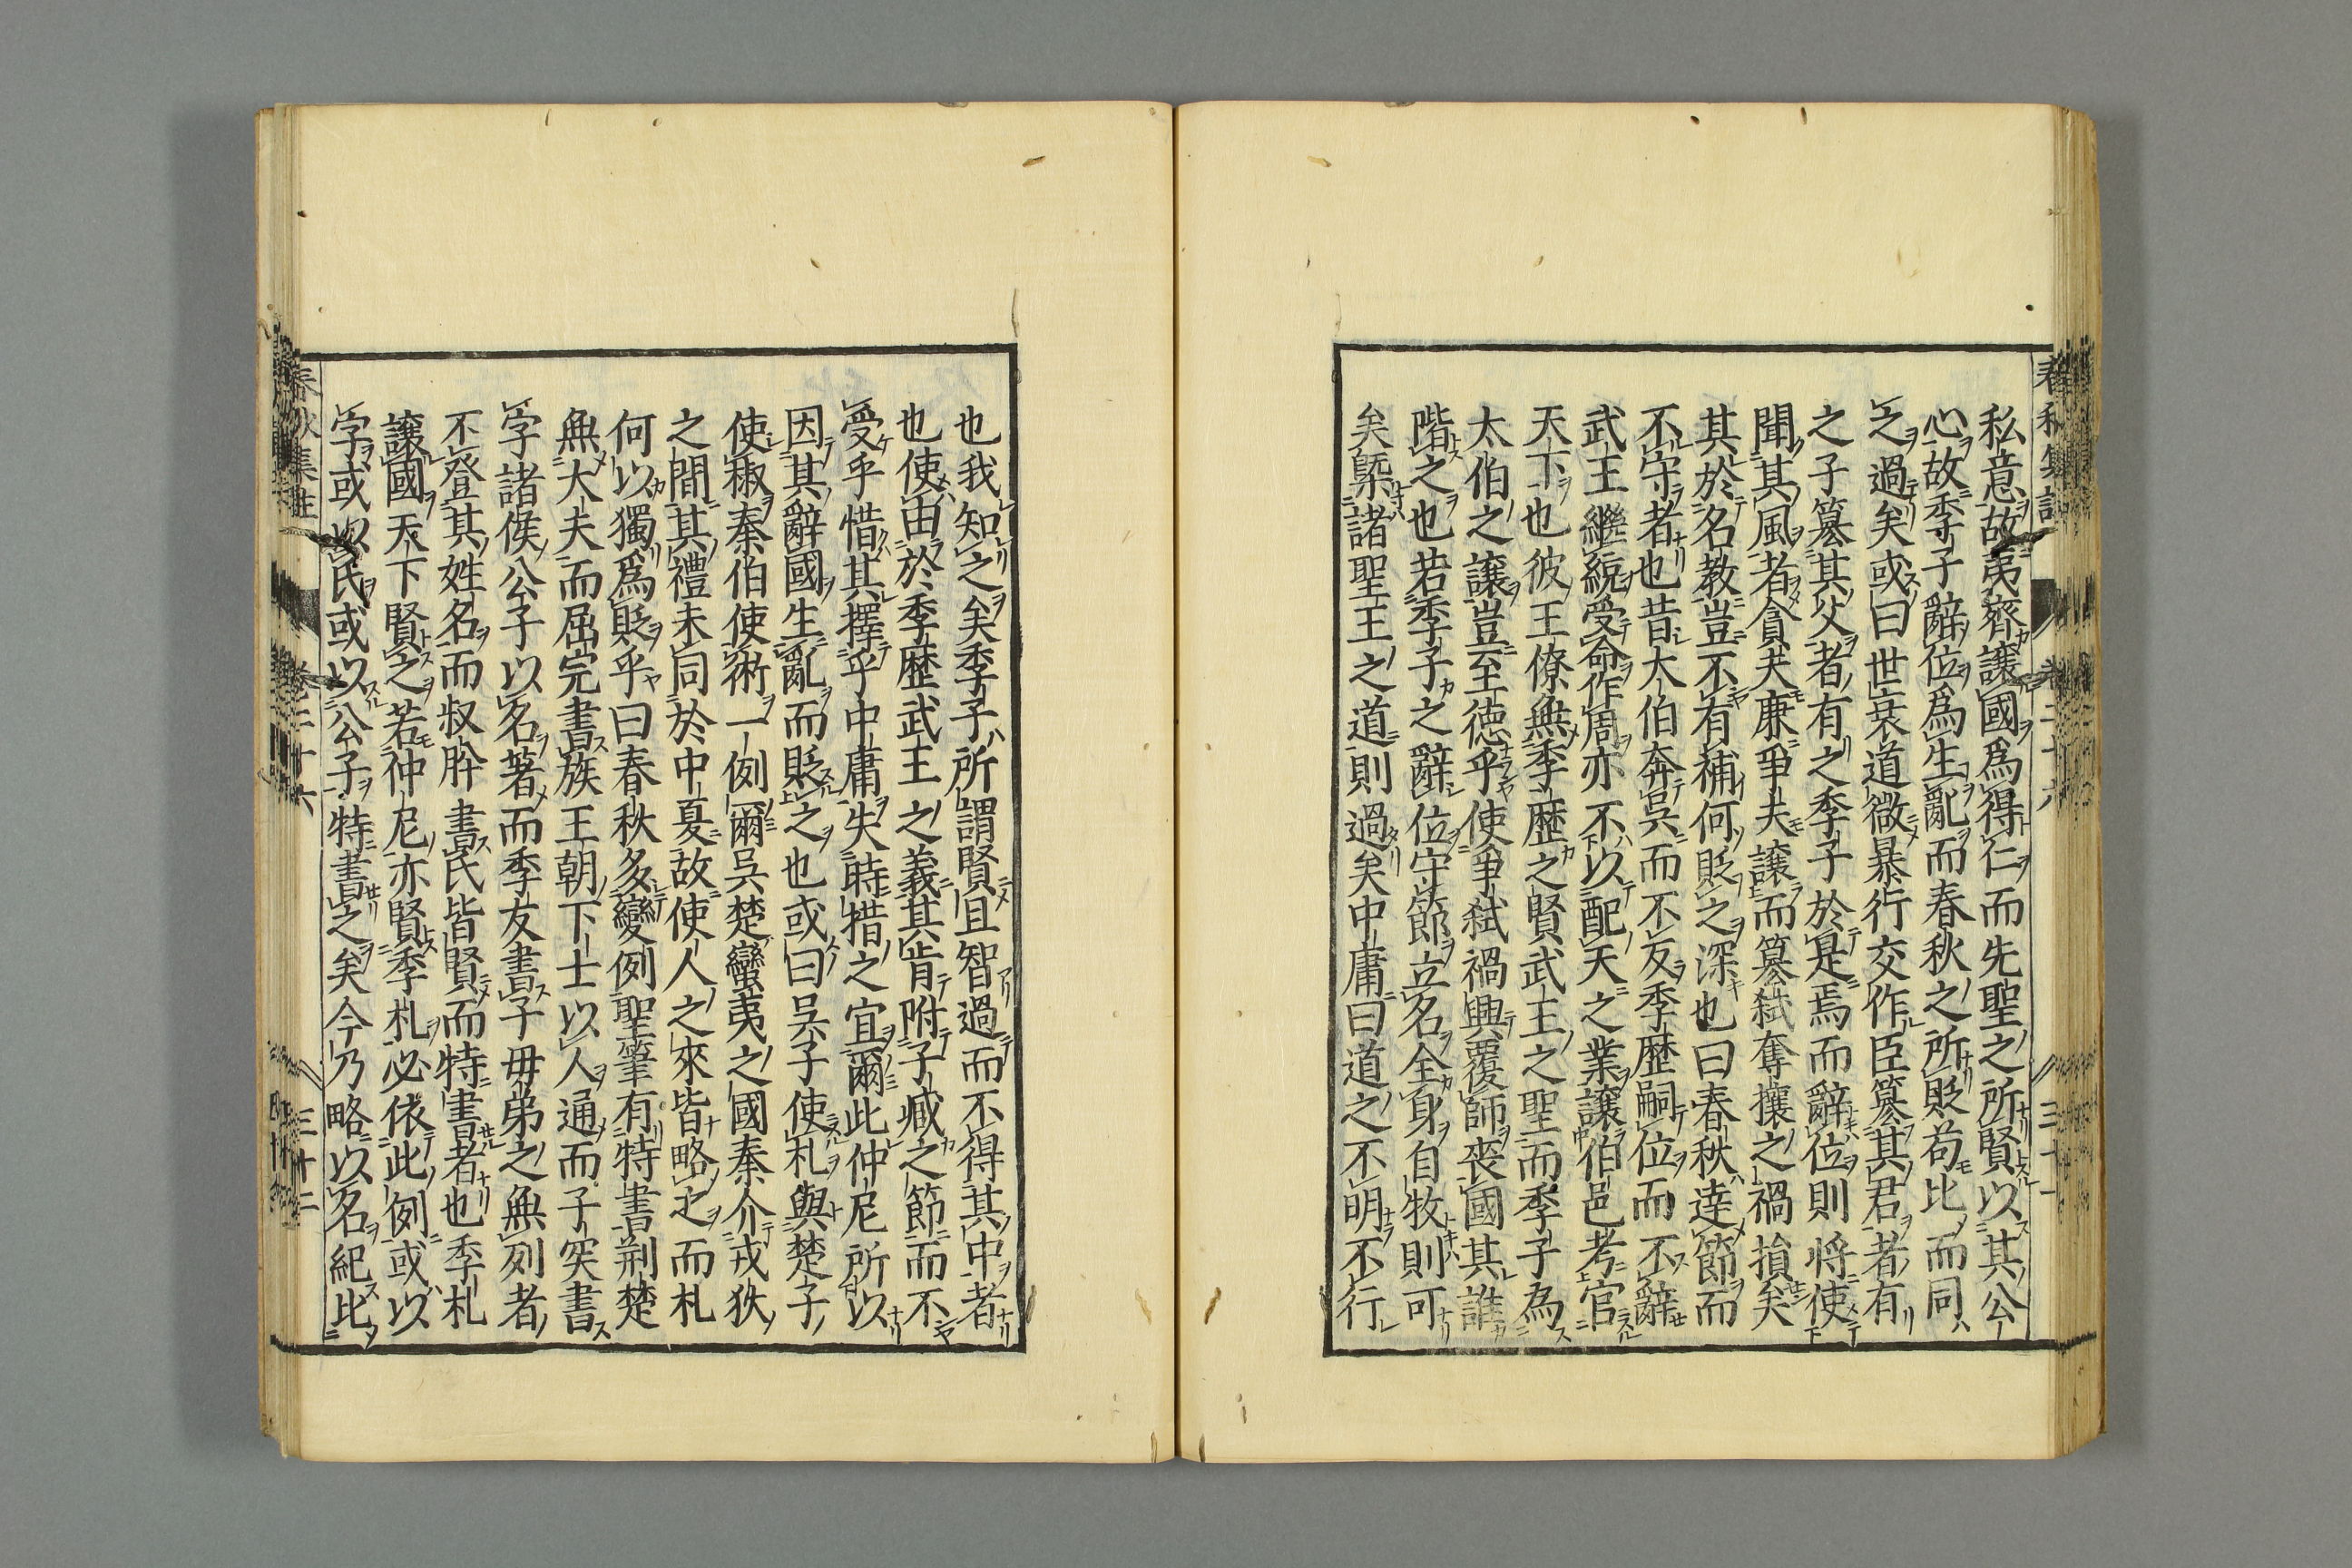 私意故夷齊讓國爲得仁而先聖之所賢以其公
心故季子辭位爲生亂而春秋之所貶苟比而同
之過矣或曰世衰道微暴行交作臣簒其君者有
之子簒其父者有之季子於是焉而辭位則將使
聞其風者貪夫廉爭夫讓而簒弑奪攘之禍損矣
其於名教豈不有補何貶之深也曰春秋達節而
不守者也昔太伯奔吳而不反季歷嗣位而不辭
武王繼統受命作周亦不以配天之業讓伯邑考官
天下也彼王僚無季歷之賢武王之聖而季子為
太伯之讓豈至徳乎使爭弑禍興覆師喪國其誰
階之也若季子之辭位守節立名全身自牧則可
矣槩諸聖王之道則過矣中庸曰道之不明不行
也我知之矣季子所謂賢且智過而不得其中者
也使由於季歷武王之義其肯附子臧之節而不
受乎惜其擇乎中庸失時措之宜爾此仲尼所以
因其辭國生亂而貶之也或曰吳子使札與楚子
使椒秦伯使術一例爾吳楚蠻夷之國秦介戎狄
之間其禮未同於中夏故使人之來皆略之而札
何以獨爲貶乎曰春秋多變例聖筆有特書荆楚
無大夫而屈完書族王朝下士以人通而子突書
字諸侯公子以名著而季友書子毋弟之無列者
不登其姓名而叔肸書氏皆賢而特書者也季札
讓國天下賢之若仲尼亦賢季札必依此例或以
字或以氏或以公子特書之矣今乃略以名紀比
春秋集註
卷二十六
三十二